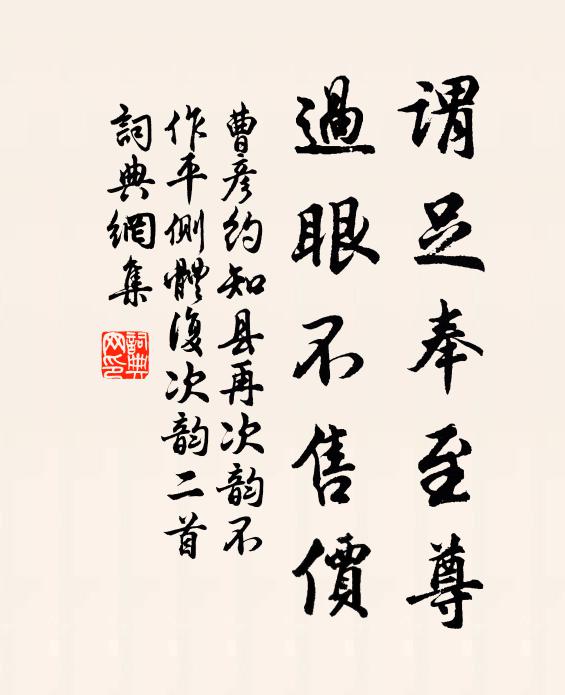 謂足奉至尊
過眼不售價
曹彦约知县再次韵不
作平側體復次韵二首
詞典網集
詞典
网印